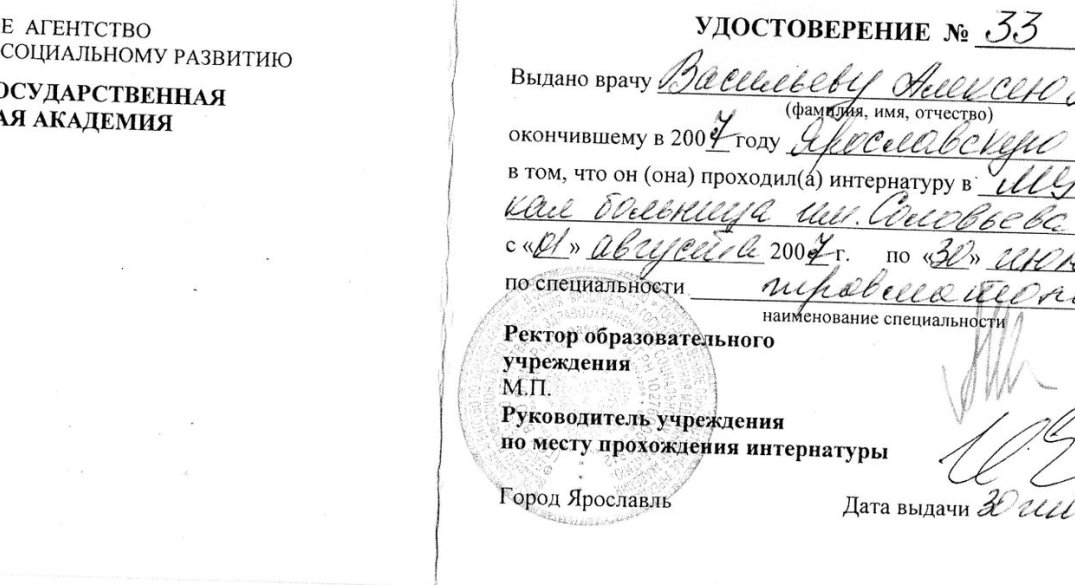 Е АГЕНТСТВО
СОЦИАЛЬНОМУ РАЗВИТИЮ
ОСУДАРСТВЕННАЯ
АЯ АКАДЕМИЯ
УДОСТОВЕРЕНИЕ № 33
Выдано врачу Васильеву Алексею
(фамилия, имя, отчество)
окончившему в 2007 году Ярославскую
в том, что он (она) проходил(а) интернатуру в МУ
кая больница им. Соловьева
с «01» августа 2007 г. по «30» июн
по специальности травматоло
наименование специальности
Ректор образовательного
учреждения
М.П.
Руководитель учреждения
по месту прохождения интернатуры
Город Ярославль
Дата выдачи 30 ию